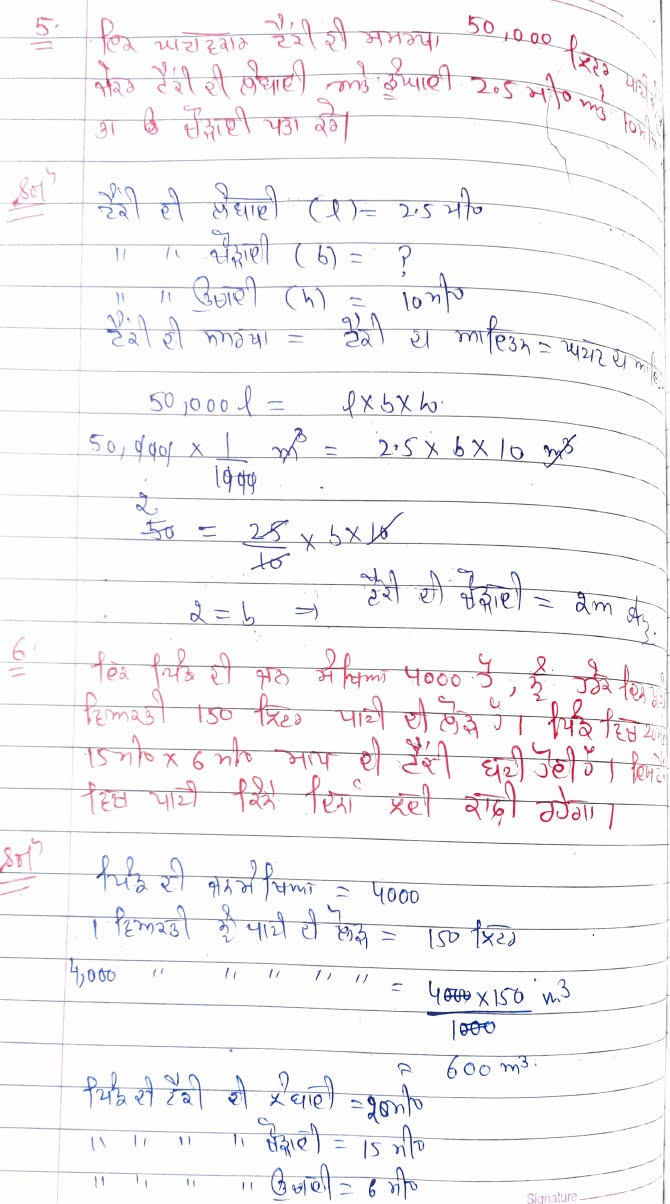 5. ਇਕ ਘਣਾਵਕਾਰ ਟੈਂਕੀ ਦੀ ਸਮਰਥਾ 50,000 ਲਿਟਰ ਪਾਣੀ
ਟੈਂਕੀ ਦੀ ਲੰਬਾਈ ਅਤੇ ਉਚਾਈ 2.5 ਮੀ० ਅਤੇ 10 ਮੀ०
ਤਾਂ ਚੌੜਾਈ ਪਤਾ ਕਰੋ।
Solⁿ ਟੈਂਕੀ ਦੀ ਲੰਬਾਈ (l) = 2.5 ਮੀ०
" " ਚੌੜਾਈ (b) = ?
" " ਉਚਾਈ (h) = 10 ਮੀ०
ਟੈਂਕੀ ਦੀ ਸਮਰਥਾ = ਟੈਂਕੀ ਦਾ ਆਇਤਨ =
50,000 l = l × b × h
50,000 × 1/1000 m³ = 2.5 × b × 10 m³
2
50 = 25/10 × b × 10
2 = b ⇒ ਟੈਂਕੀ ਦੀ ਚੌੜਾਈ = 2m
6. ਇਕ ਪਿੰਡ ਦੀ ਜਨਸੰਖਿਆ 4000 ਹੈ, ਨੂੰ ਹਰੇਕ ਦਿਨ
ਵਿਅਕਤੀ 150 ਲਿਟਰ ਪਾਣੀ ਦੀ ਲੋੜ ਹੈ। ਪਿੰਡ ਵਿਚ
15 ਮੀ० × 6 ਮੀ० ਮਾਪ ਦੀ ਟੈਂਕੀ ਬਣੀ ਹੋਈ ਹੈ।
ਵਿਚ ਪਾਣੀ ਕਿੰਨੇ ਦਿਨਾਂ ਲਈ ਕਾਫੀ ਹੋਵੇਗਾ।
Solⁿ ਪਿੰਡ ਦੀ ਜਨਸੰਖਿਆ = 4000
1 ਵਿਅਕਤੀ ਨੂੰ ਪਾਣੀ ਦੀ ਲੋੜ = 150 ਲਿਟਰ
4,000 " " " " " = 4000 × 150/1000 m³
= 600 m³.
ਪਿੰਡ ਦੀ ਟੈਂਕੀ ਦੀ ਲੰਬਾਈ = 20 ਮੀ०
" " " " ਚੌੜਾਈ = 15 ਮੀ०
" " " " ਉਚਾਈ = 6 ਮੀ०
Signature